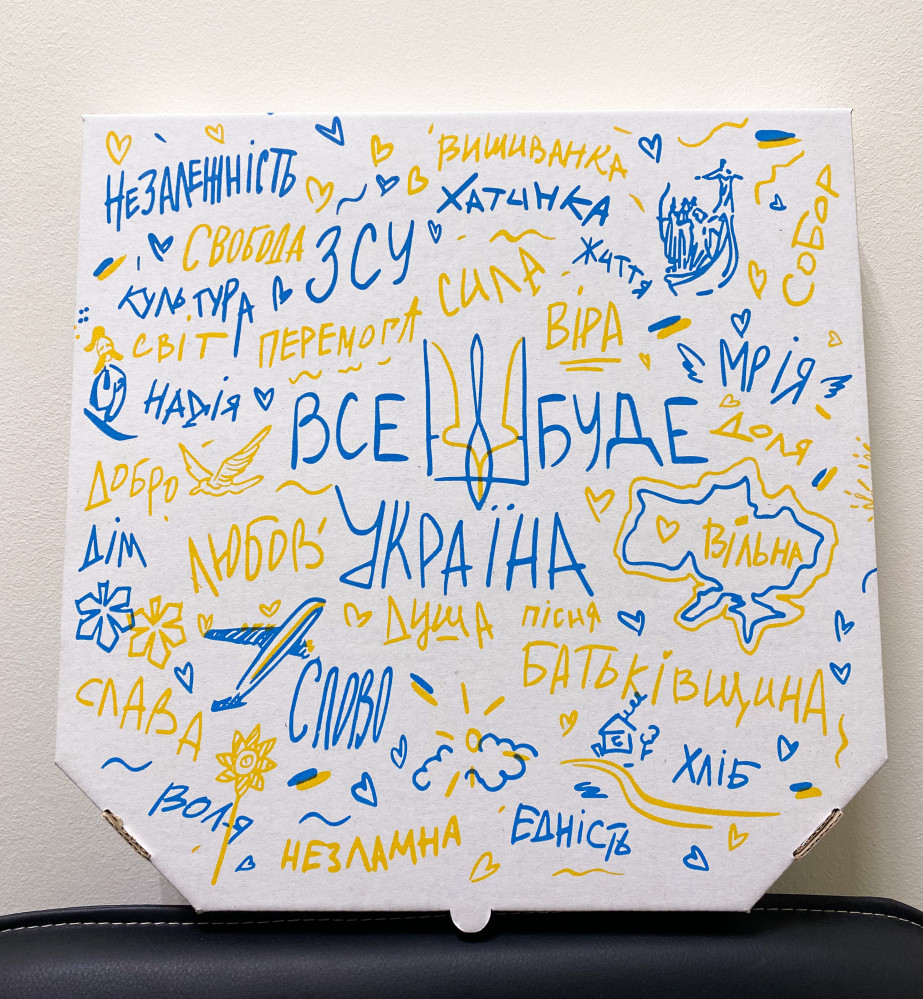 НЕЗАЛЕЖНІСТЬ
ВИШИВАНКА
ХАТИНКА
СОБОР
СВОБОДА
ЗСУ
ЖИТТЯ
КУЛЬТУРА
СИЛА
СВІТ
ПЕРЕМОГА
ВІРА
МРІЯ
НАДІЯ
ВСЕ БУДЕ
УКРАЇНА
ДОЛЯ
ДОБРО
ДІМ
ЛЮБОВ'
ВІЛЬНА
ДУША
ПІСНЯ
БАТЬКІВЩИНА
СЛАВА
СЛОВО
ХЛІБ
ВОЛ-Я
НЕЗЛАМНА
ЄДНІСТЬ